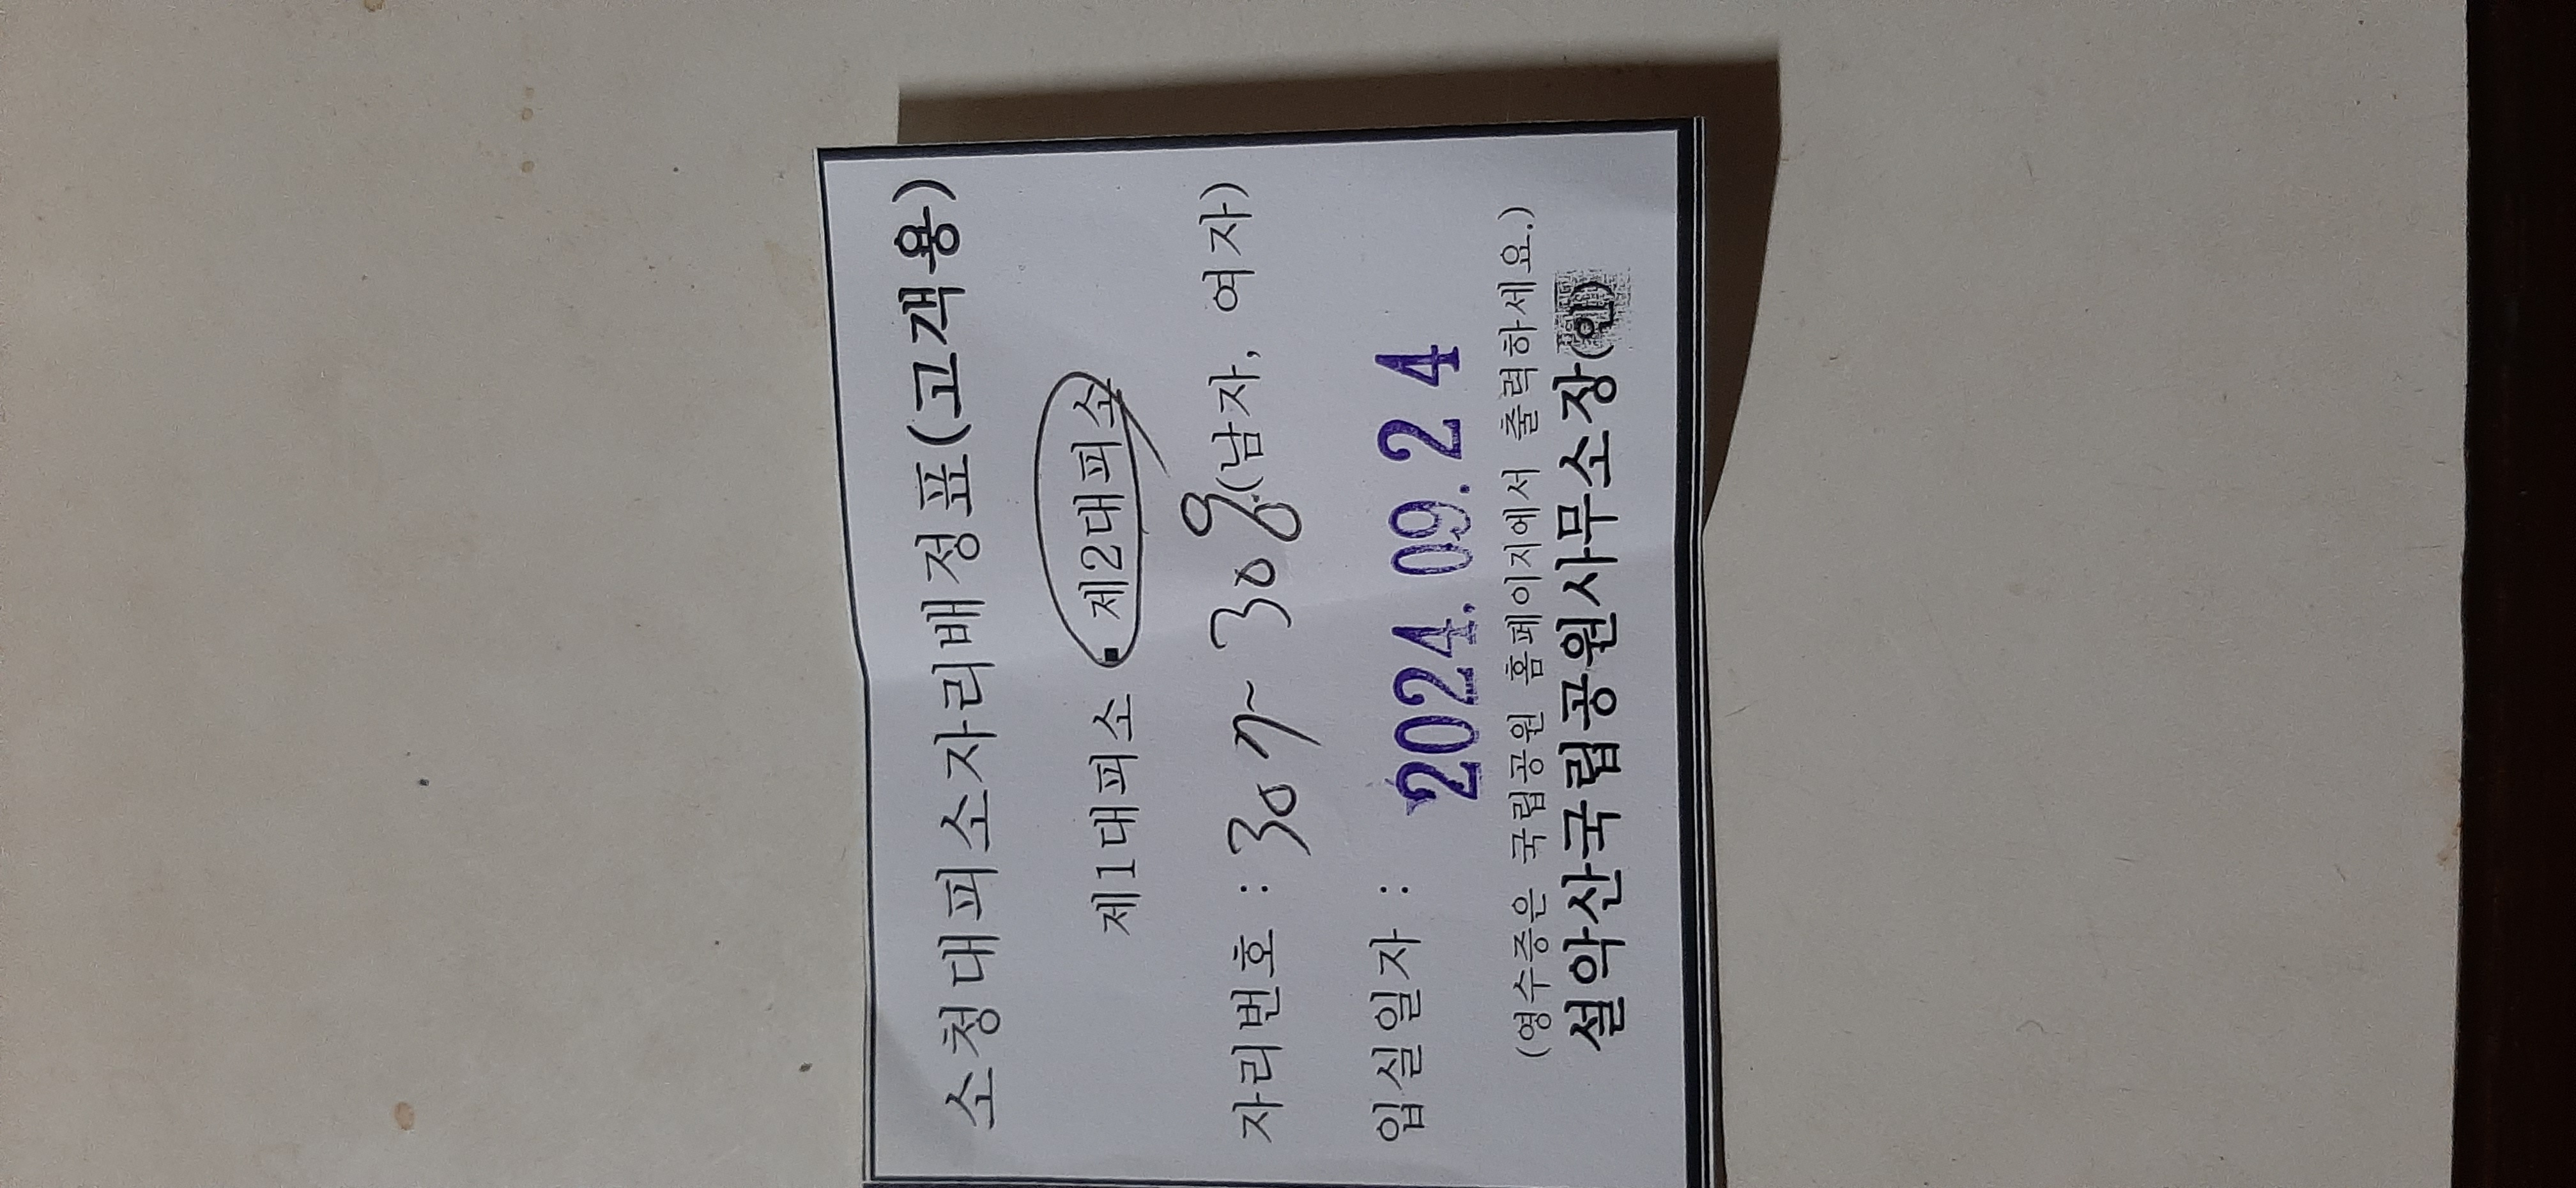 소청대피소자리배정표(고객용)
제1대피소 ▪ 제2대피소
자리번호 : 307~308.(남자, 여자)
입실일자 : 2024.09.24
(영수증은 국립공원 홈페이지에서 출력하세요.)
설악산국립공원사무소장(인)